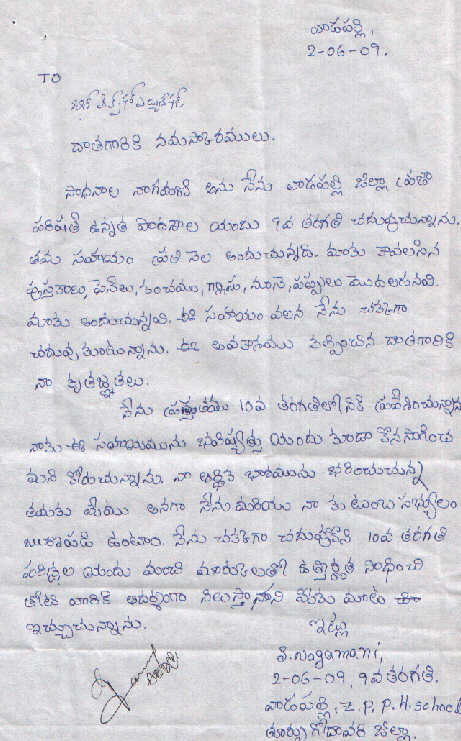 వాడపల్లి,
2-06-09.
TO
దాతగారికి నమస్కారములు.
సాధనాల నాగమణి అను నేను వాడపల్లి జిల్లా ప్రజా
పరిషత్ ఉన్నత పాఠశాల యందు 9వ తరగతి చదువుచున్నాను.
తమ సహాయం ప్రతి నెల అందుచున్నది. మాకు కావలసిన
పుస్తకాలు, పెన్‌లు, కంచము, గ్లాసు, నూనె, పప్పులు మొదలగునవి
మాకు అందుచున్నవి. ఈ సహాయం వలన నేను చక్కగా
చదువు కుంటున్నాను. ఈ అవకాశము కల్పించిన దాతగారికి
నా కృతజ్ఞతలు.
నేను ప్రస్తుతము 10వ తరగతిలోనికి ప్రవేశించుచున్నాను
నాకు ఈ సహాయమును భవిష్యత్తు యందు కూడా కొనసాగించ
మని కోరుచున్నాను. నా ఆర్థిక భారమును భరించుచున్న
తమకు మేము అనగా నేను మరియు నా కుటుంబ సభ్యులం
ఋణపడి ఉంటాం. నేను చక్కగా చదువుకొని 10వ తరగతి
పరీక్షల యందు మంచి మార్కులతో ఉత్తీర్ణత సాధించి
తోటి వారికి ఆదర్శంగా నిలుస్తానని మాట
ఇచ్చుచున్నాను.
ఇట్లు
S.Nagamani,
2-06-09, 9వ తరగతి.
వాడపల్లి, Z.P.P.H. school
తూర్పు గోదావరి జిల్లా.